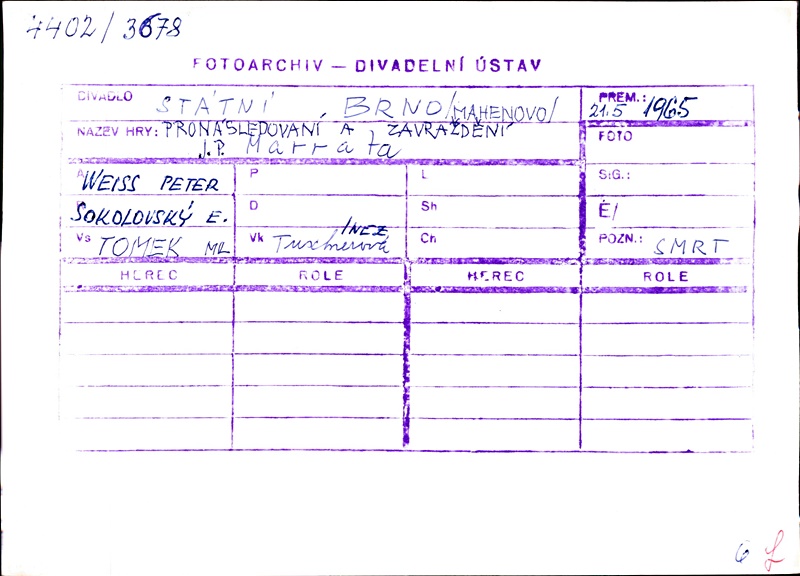 4402/3678
FOTOARCHIV — DIVADELNÍ ÚSTAV
DIVADLO STÁTNÍ, BRNO/MAHENOVO/ PREM.: 21.5 1965
NÁZEV HRY: PRONÁSLEDOVÁNÍ A ZAVRAŽDĚNÍ
J.P. Marrata FOTO
A WEISS PETER P L SIG.:
SOKOLOVSKÝ E. D Sh É/
Vs TOMEK MIL Vk INEZ Tuschnerová Ch POZN.: SMRT
HEREC ROLE HEREC ROLE
6